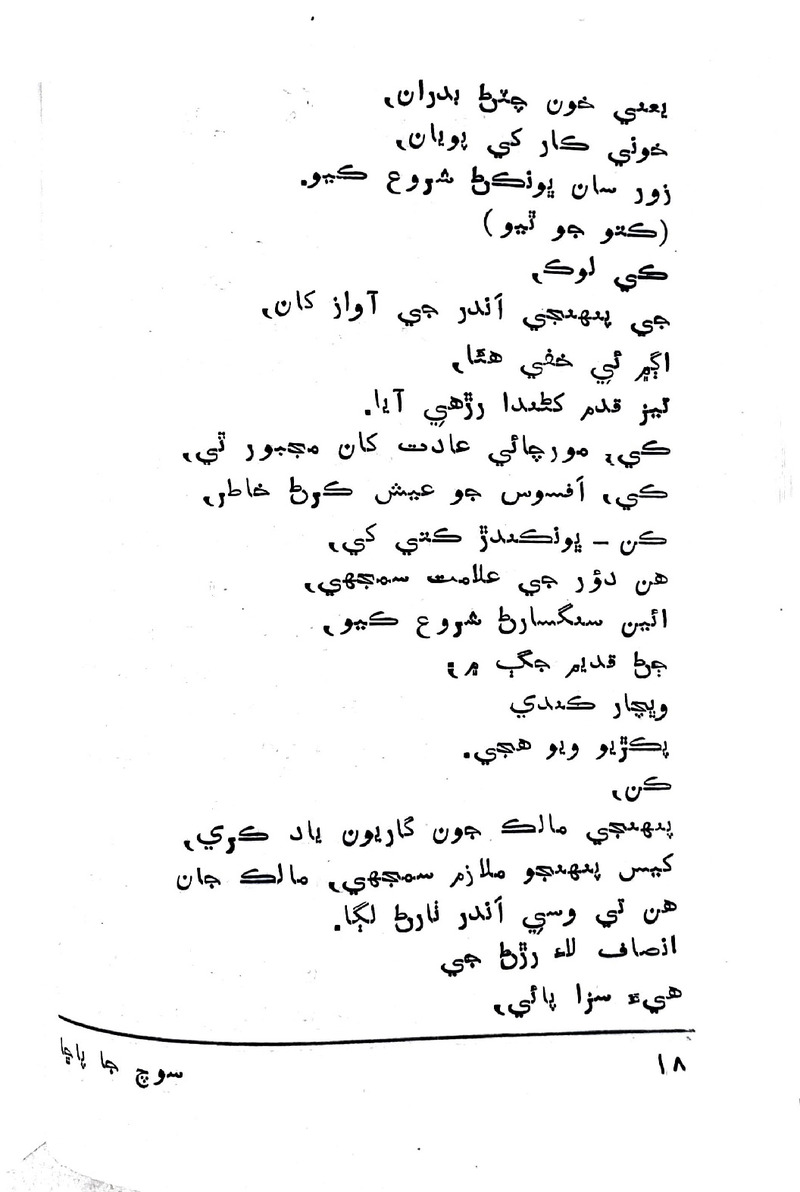 يعني خون چٽڻ بدران،
خوني ڪار کي پويان،
زور سان ڀونڪڻ شروع ڪيو.
(ڪتو جو ٿيو)
ڪي لوڪ،
جي پنهنجي اَندر جي آواز کان،
اڳ۾ ئي خفي هئا،
تيز قدم کڻندا رڙهي آيا.
ڪي، مورچائي عادت کان مجبور ٿي،
ڪي، اَفسوس جو عيش ڪرڻ خاطر،
ڪن - ڀونڪندڙ ڪتي کي،
هن دؤر جي علامت سمجهي،
ائين سنگسارڻ شروع ڪيو،
ڄڻ قديم جڳ ۾،
ويچار ڪندي
پڪڙيو ويو هجي.
ڪن،
پنهنجي مالڪ جون گاريون ياد ڪري،
کيس پنهنجو ملازم سمجهي، مالڪ جان
هن تي وسي اَندر ٺارڻ لڳا.
انصاف لاءِ رڙڻ جي
هيءَ سزا پائي،
١٨
سوچ جا پاڇا